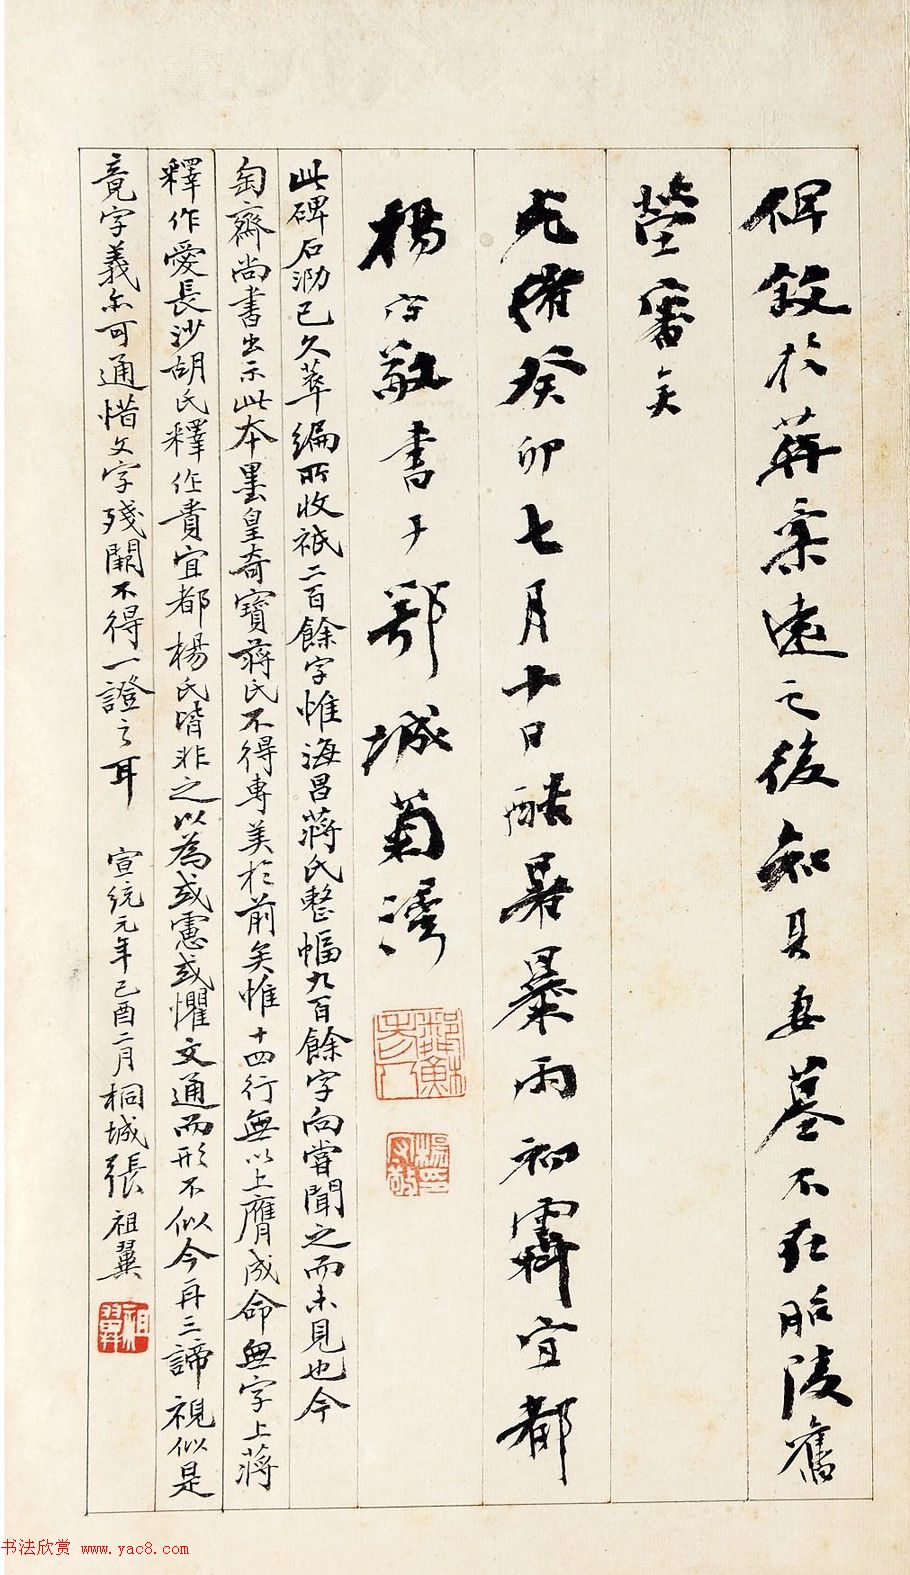 碑敘於葬宋遠之後知其妻墓不在昭陵舊
塋審矣
光緒癸卯七月十日酷暑暴雨初霽宜都
楊守敬書于鄂城菊灣
鄰蘇老人
楊守敬印
此碑石泐已久萃編所收祇二百餘字惟海昌蔣氏整幅九百餘字向嘗聞之而未見也今
匋齋尚書出示此本墨皇奇寶蔣氏不得專美於前矣惟十四行無以上膺成命無字上蔣
釋作愛長沙胡氏釋作貴宜都楊氏皆非之以為或憲或懼文通而形不似今再三諦視似是
竟字義亦可通惜文字殘闕不得一證之耳 宣統元年己酉二月桐城張祖翼
祖翼
书法欣赏 www.yac8.com